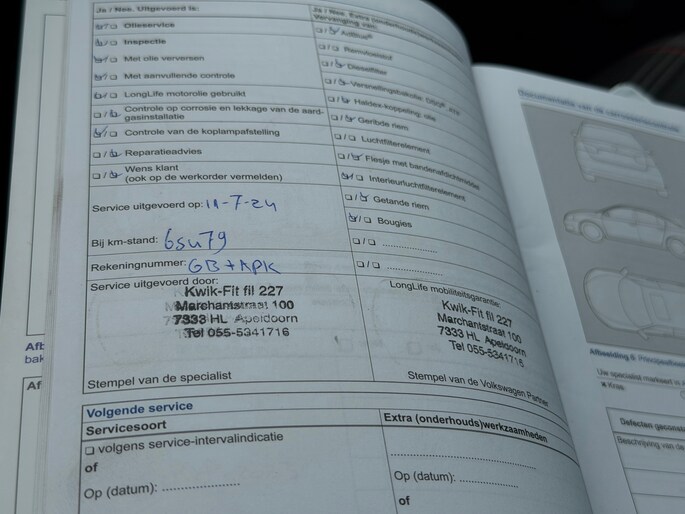 Ja / Nee. Uitgevoerd is:
Olieservice
Inspectie
Met olie verversen
Met aanvullende controle
LongLife motorolie gebruikt
Controle op corrosie en lekkage van de aard-
gasinstallatie
Controle van de koplampafstelling
Reparatieadvies
Wens klant
(ook op de werkorder vermelden)
Service uitgevoerd op: 11-7-24
Bij km-stand:
Rekeningnummer: GB+APK
Service uitgevoerd door:
Kwik-Fit fil 227
Marchantstraat 100
7333 HL Apeldoorn
Tel 055-5341716
Stempel van de specialist
Ja / Nee. Extra
Vervanging van:
AdBlue®
Remvloeistof
Dieselfilter
Haldex-koppeling: olie
Geribde riem
Luchtfilterelement
Flesje met bandenafdichtmiddel
Interieurluchtfilterelement
Getande riem
Bougies
LongLife mobiliteitsgarantie:
Kwik-Fit fil 227
Marchantstraat 100
7333 HL Apeldoorn
Tel 055-5341716
Stempel van de Volkswagen Partner
Volgende service
Servicesoort
volgens service-intervalindicatie
of
Op (datum):
Extra (onderhouds)werkzaamheden
Op (datum):
of
Afb
bak
Af
Afbeelding 6
Uw specialist markeert
Kras
Beschrijving van de